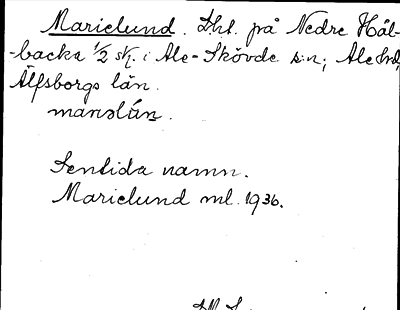 Marielund. Lht. på Nedre Häl-
-backa 1/2 sk. i Ale-Skövde s:n, Ale hd,
Älfsborgs län.
marəlún.
Sentida namn.
Marielund ml. 1936.